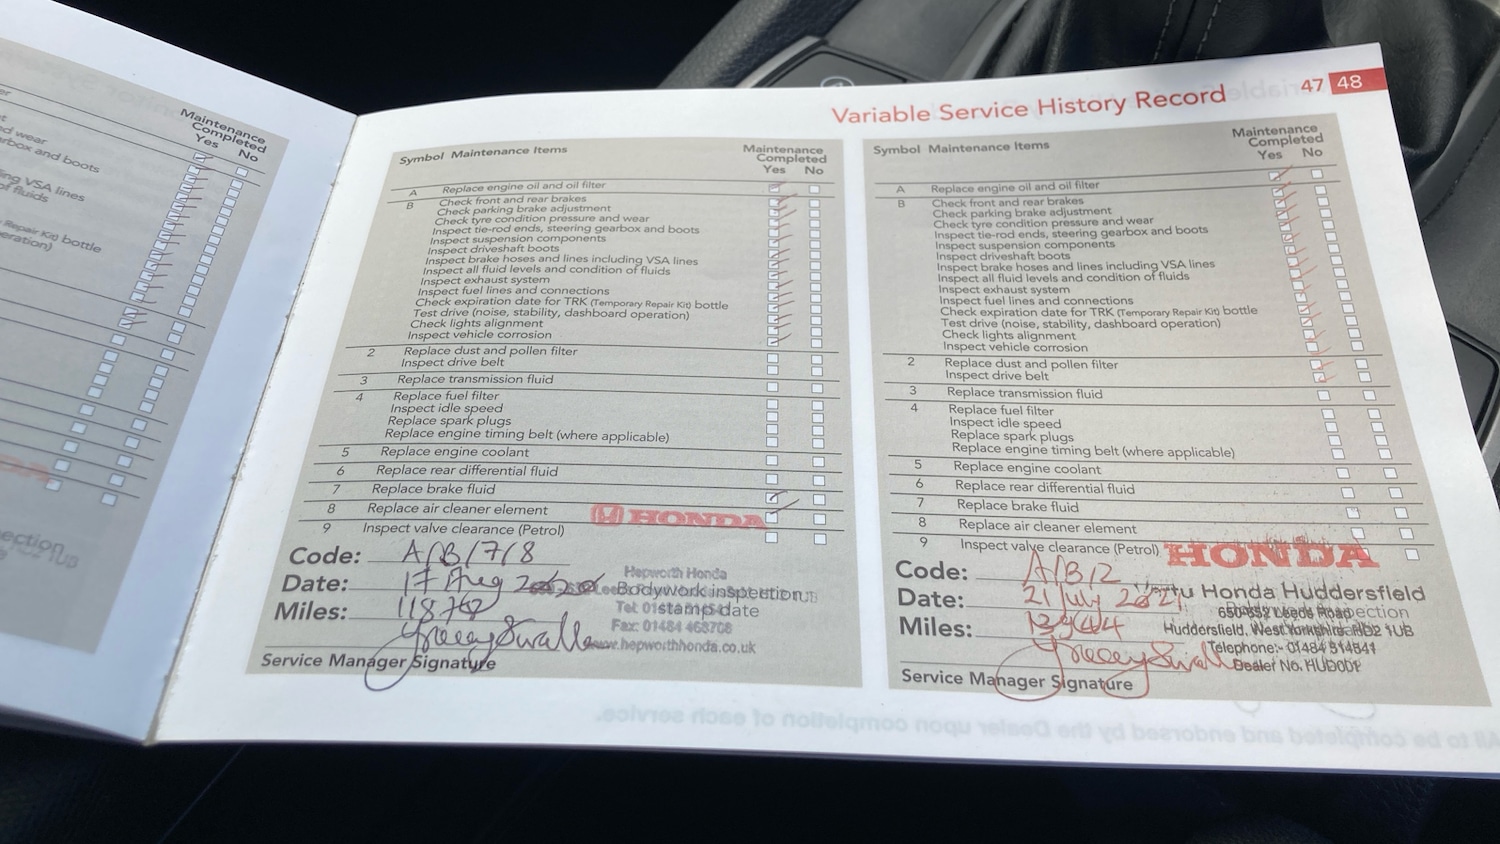 er
Maintenance
Completed
Yes No
d wear
rbox and boots
ing VSA lines
of fluids
Repair Kit) bottle
eration)
Variable Service History Record
47 48
Symbol Maintenance Items
Maintenance
Completed
Yes No
A Replace engine oil and oil filter
B Check front and rear brakes
Check parking brake adjustment
Check tyre condition pressure and wear
Inspect tie-rod ends, steering gearbox and boots
Inspect suspension components
Inspect driveshaft boots
Inspect brake hoses and lines including VSA lines
Inspect all fluid levels and condition of fluids
Inspect exhaust system
Inspect fuel lines and connections
Check expiration date for TRK (Temporary Repair Kit) bottle
Test drive (noise, stability, dashboard operation)
Check lights alignment
Inspect vehicle corrosion
2 Replace dust and pollen filter
Inspect drive belt
3 Replace transmission fluid
4 Replace fuel filter
Inspect idle speed
Replace spark plugs
Replace engine timing belt (where applicable)
5 Replace engine coolant
6 Replace rear differential fluid
7 Replace brake fluid
8 Replace air cleaner element
HONDA
9 Inspect valve clearance (Petrol)
Code: A/B/7/8
Date: 17 Aug
Miles:
Hepworth Honda
Bodywork inspection
stamp date
Fax: 01484 468708
www.hepworthhonda.co.uk
Service Manager Signature
Symbol Maintenance Items
Maintenance
Completed
Yes No
A Replace engine oil and oil filter
B Check front and rear brakes
Check parking brake adjustment
Check tyre condition pressure and wear
Inspect tie-rod ends, steering gearbox and boots
Inspect suspension components
Inspect driveshaft boots
Inspect brake hoses and lines including VSA lines
Inspect all fluid levels and condition of fluids
Inspect exhaust system
Inspect fuel lines and connections
Check expiration date for TRK (Temporary Repair Kit) bottle
Test drive (noise, stability, dashboard operation)
Check lights alignment
Inspect vehicle corrosion
2 Replace dust and pollen filter
Inspect drive belt
3 Replace transmission fluid
4 Replace fuel filter
Inspect idle speed
Replace spark plugs
Replace engine timing belt (where applicable)
5 Replace engine coolant
6 Replace rear differential fluid
7 Replace brake fluid
8 Replace air cleaner element
9 Inspect valve clearance (Petrol)
HONDA
Code: A/B/2
Date: 21 July 2021
Miles:
Honda Huddersfield
Leeds Road
Huddersfield, West Yorkshire, HD2 1UB
Telephone:-
Dealer No. HUD001
Service Manager Signature
All to be completed and endorsed by the Dealer upon completion of each service.